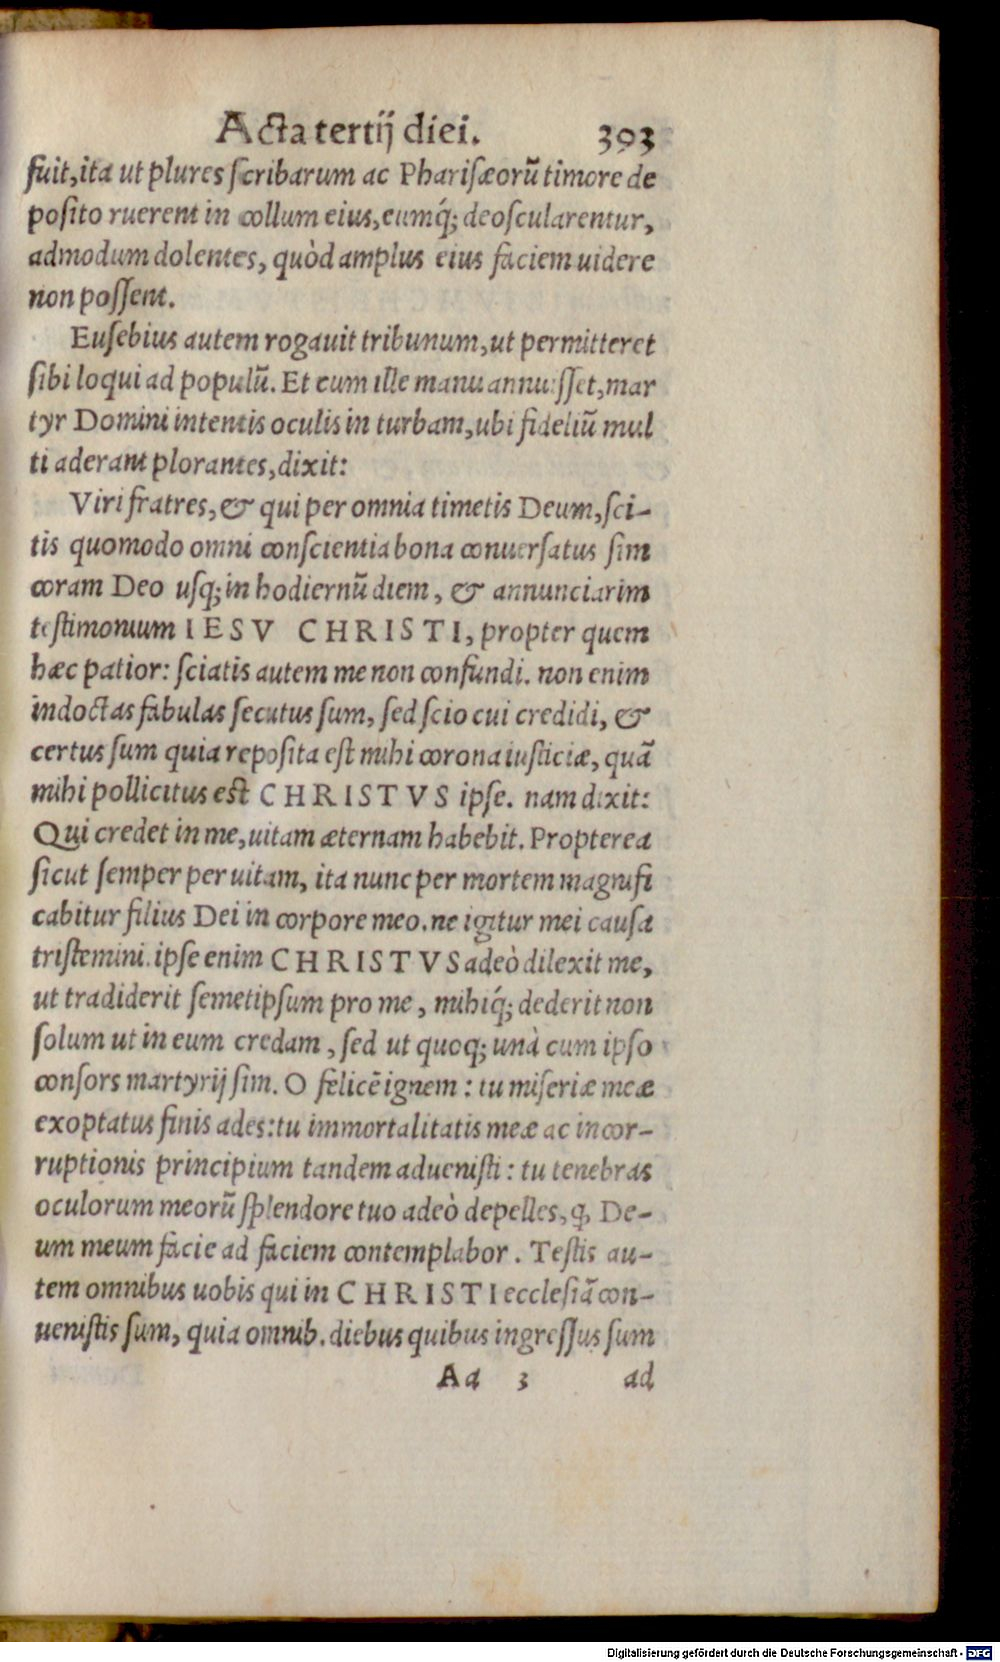 Acta tertij diei. 393
fuit, ita ut plures scribarum ac Pharisæorũ timore de
posito ruerent in collum eius, eumq́; deoscularentur,
admodum dolentes, quòd amplus eius faciem uidere
non possent.
Eusebius autem rogauit tribunum, ut permitteret
sibi loqui ad populũ. Et cum ille manu annuisset, mar
tyr Domini intentis oculis in turbam, ubi fideliũ mul
ti aderant plorantes, dixit:
Viri fratres, & qui per omnia timetis Deum, sci-
tis quomodo omni conscientia bona conuersatus sim
coram Deo usq; in hodiernũ diem, & annunciarim
testimonium IESV CHRISTI, propter quem
hæc patior: sciatis autem me non confundi. non enim
indoctas fabulas secutus sum, sed scio cui credidi, &
certus sum quia reposita est mihi corona iusticiæ, quã
mihi pollicitus est CHRISTVS ipse. nam dixit:
Qui credet in me, uitam æternam habebit. Propterea
sicut semper per uitam, ita nunc per mortem magnifi
cabitur filius Dei in corpore meo. ne igitur mei causa
tristemini. ipse enim CHRISTVS adeò dilexit me,
ut tradiderit semetipsum pro me, mihiq́; dederit non
solum ut in eum credam, sed ut quoq; unà cum ipso
consors martyrij sim. O felicẽ ignem: tu miseriæ meæ
exoptatus finis ades: tu immortalitatis meæ ac incor-
ruptionis principium tandem aduenisti: tu tenebras
oculorum meorũ splendore tuo adeò depelles, ꝙ De-
um meum facie ad faciem contemplabor. Testis au-
tem omnibus uobis qui in CHRISTI ecclesiã con-
uenistis sum, quia omnib. diebus quibus ingressus sum
Aa 3 ad
Digitalisierung gefördert durch die Deutsche Forschungsgemeinschaft - DFG